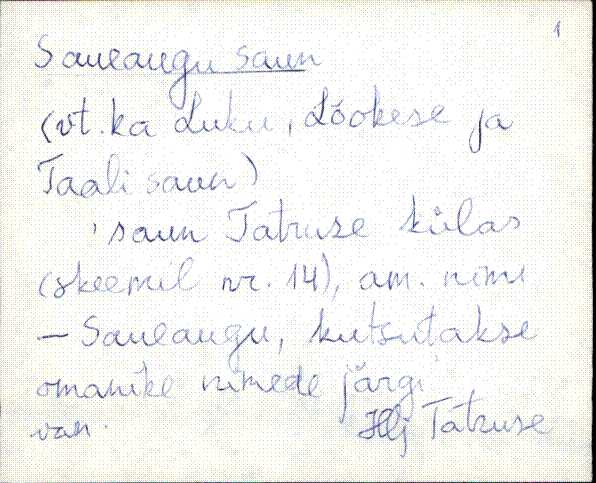 1
Saueaugu saun
(vt. ka Luku, Lõokese ja
Taali saun)
saun Tatruse külas
(skeemil nr. 14), am. nimi
- Saueaugu, kutsutakse
omanike nimede järgi
van. Hlj Tatruse